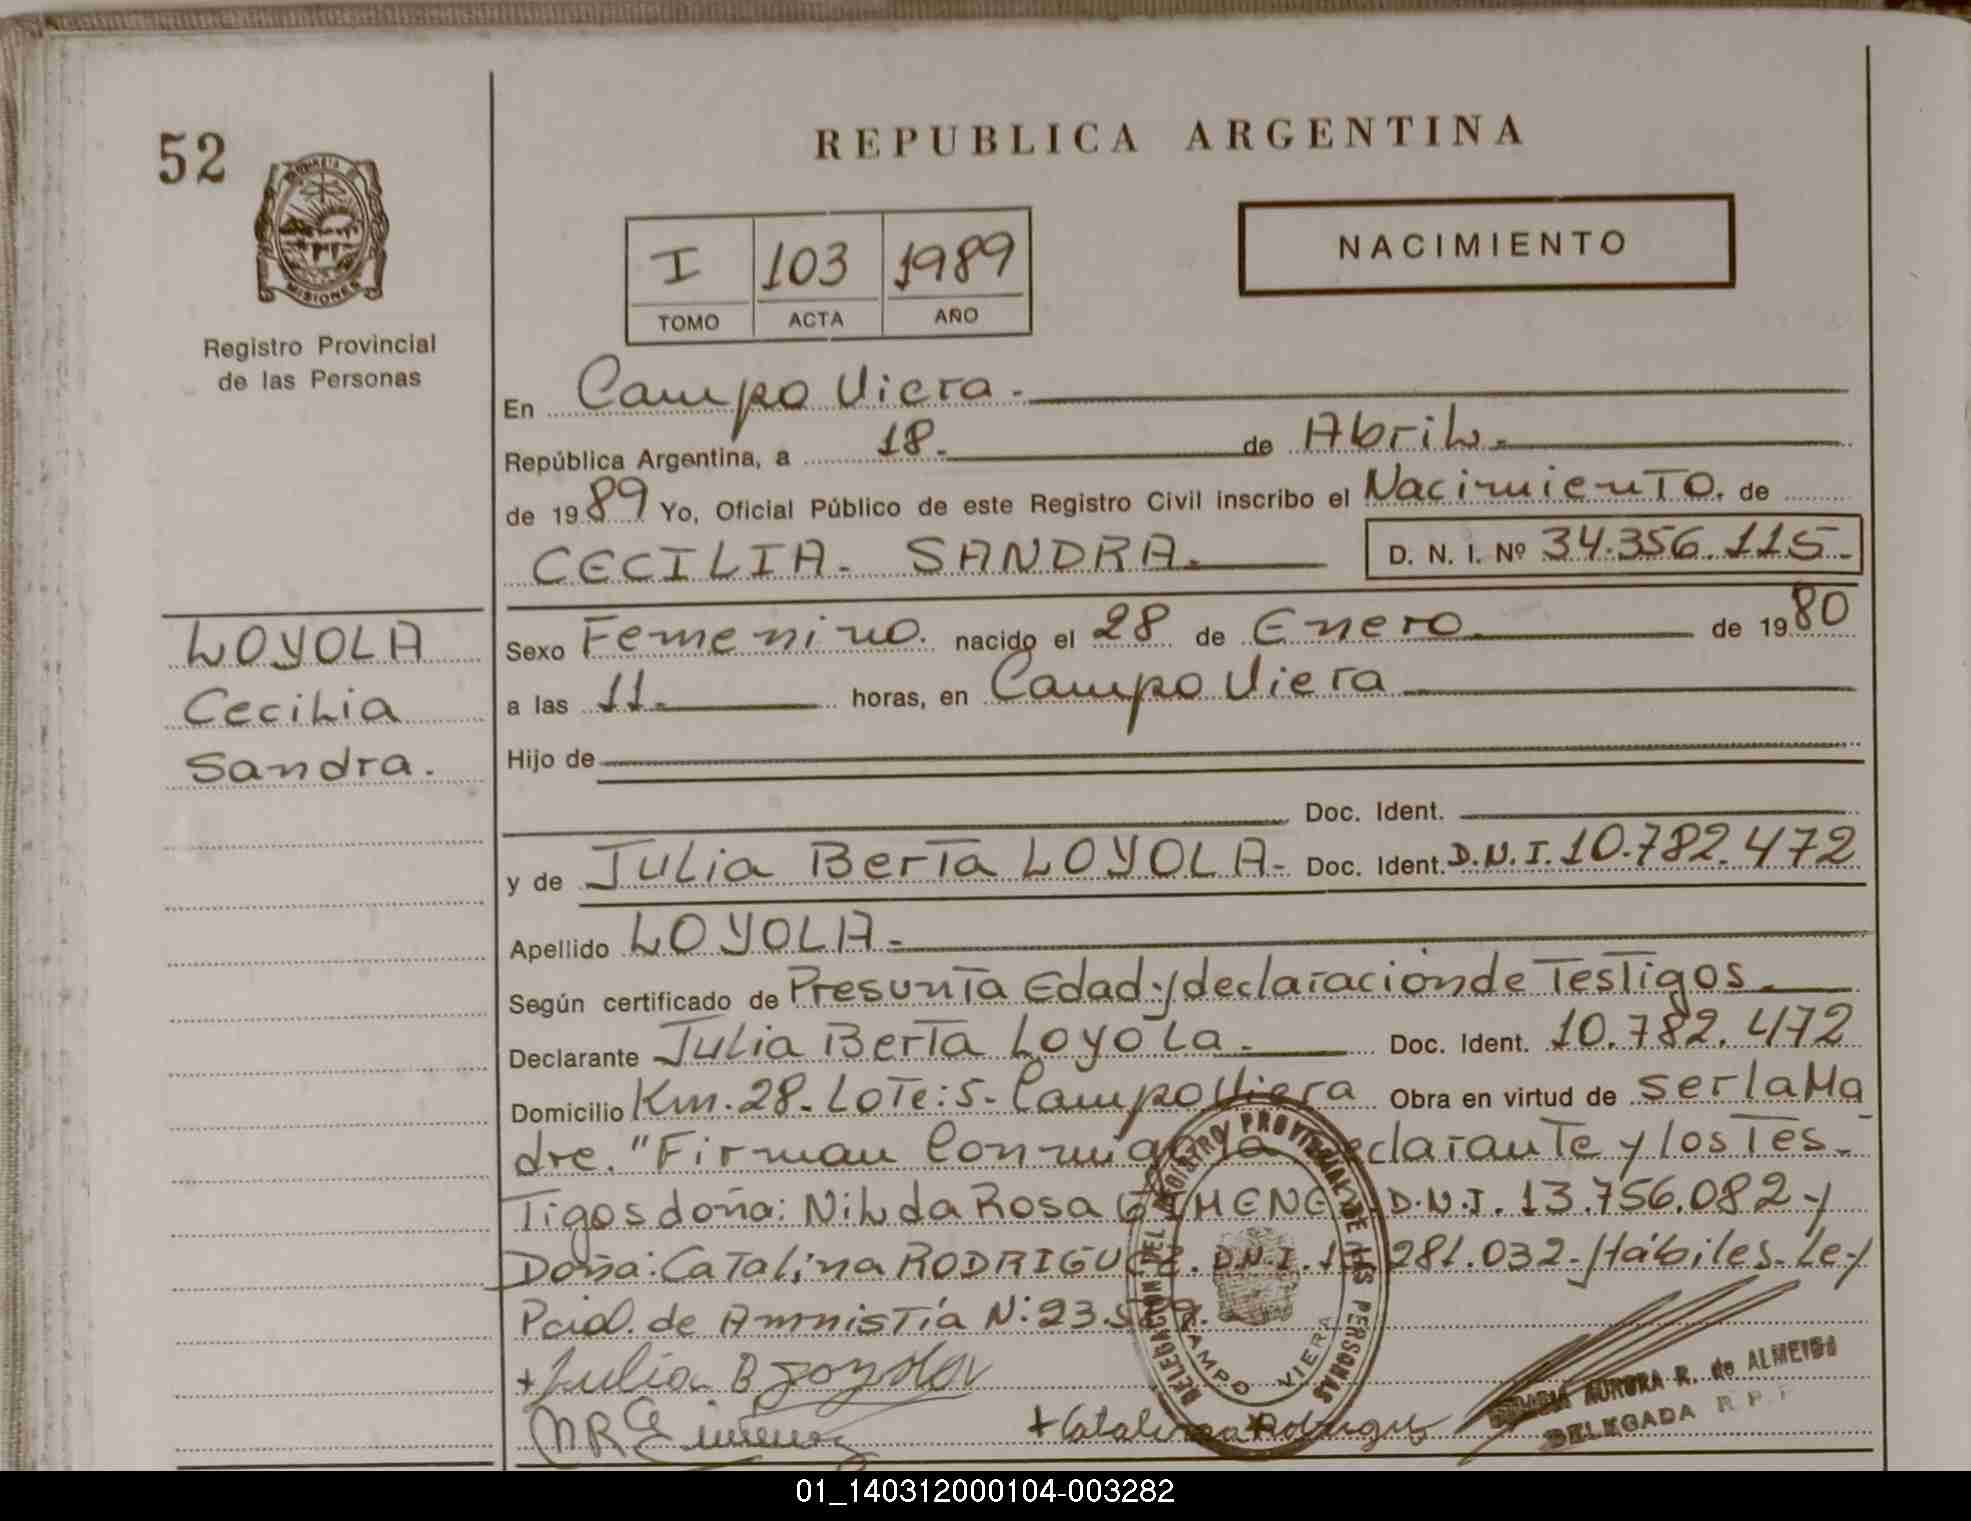 52
REPUBLICA ARGENTINA
MISIONES
Registro Provincial
de las Personas
I 103 1989
TOMO ACTA AÑO
NACIMIENTO
En Campo Viera.
República Argentina, a 18. de Abril.
de 1989 Yo, Oficial Público de este Registro Civil inscribo el Nacimiento. de
CECILIA. SANDRA. D. N. I. Nº 34.356.115.
LOYOLA
Cecilia
Sandra.
Sexo Femenino. nacido el 28 de Enero. de 1980
a las 11. horas, en Campo Viera
Hijo de
Doc. Ident.
y de Julia Berta LOYOLA- Doc. Ident. D.N.I. 10.782.472
Apellido LOYOLA-
Según certificado de Presunta Edad y declaración de Testigos.
Declarante Julia Berta Loyola. Doc. Ident. 10.782.472
Domicilio Km. 28. Lote: 5- Campo Viera Obra en virtud de ser la Ma
dre. "Firman Conmigo la declarante y los Tes-
Tigos doña: Nilda Rosa GIMENEZ D.N.I. 13.756.082 y
Doña: Catalina RODRIGUEZ. D.N.I. 281.032- Hábiles. Ley
Pcial. de Amnistía N: 23.
DELEGACION DEL REGISTRO PROVINCIAL DE LAS PERSONAS
CAMPO VIERA
+ Julia B Loyola
NR Gimenez + Catalina Rodriguez
MARIA AURORA R. de ALMEIDA
DELEGADA R. P. P.
01_140312000104-003282